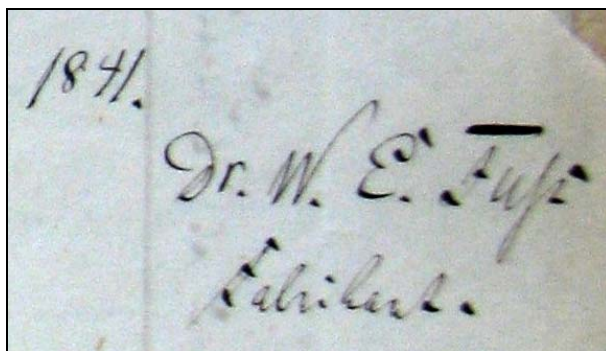 1841.
Dr. W. E. Fuß
Fabrikant.